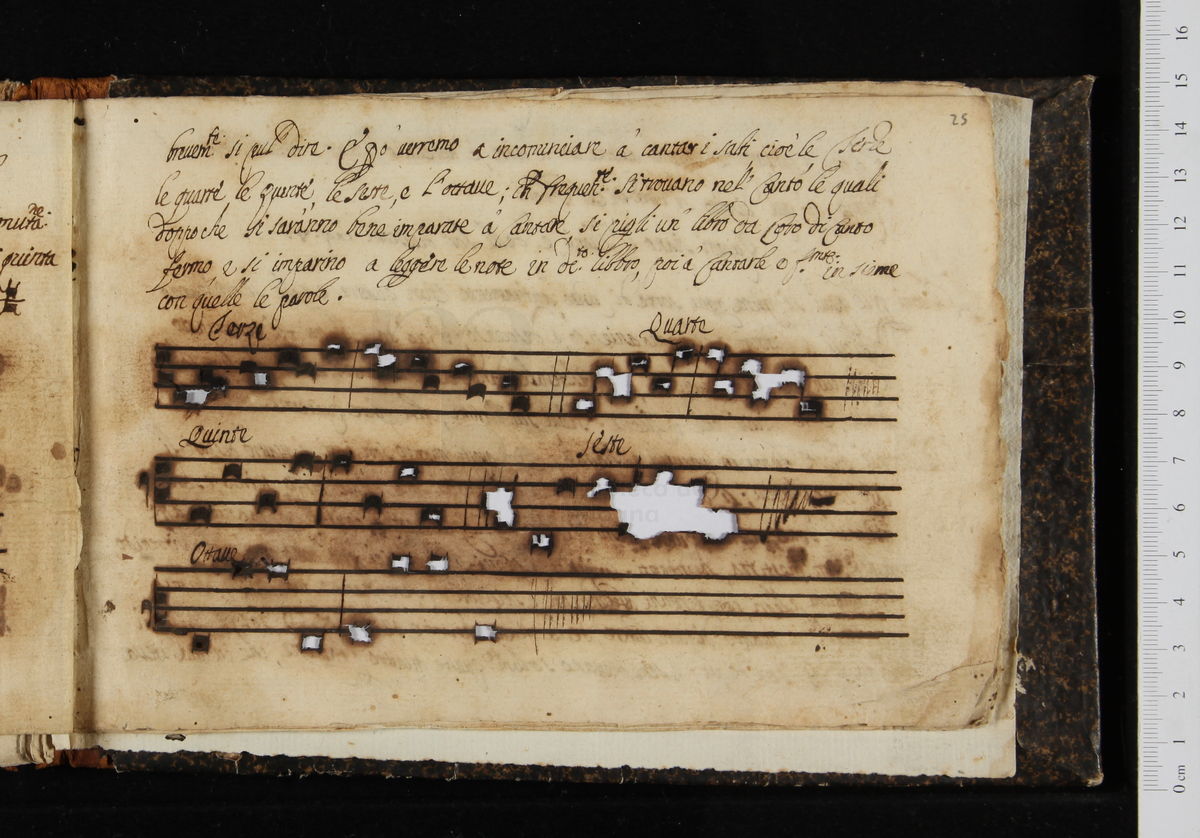 25
brevem.te si può dire. E Pò verremo a incominciare à cantar i salti cioè le Terze
le quarte, le Quinte, le seste, e l'ottave; che frequen.te si trovano nel Canto le quali
doppo che si saranno bene imparate à Cantare si pigli un libro da Coro di Canto
fermo e si imparino a leggere le note in d.to libbro, poi à Cantarle e f.mte in sieme
con quelle le parole.
Terze
Quarte
Quinte
seste
Ottave
quinta
0 cm 1 2 3 4 5 6 7 8 9 10 11 12 13 14 15 16